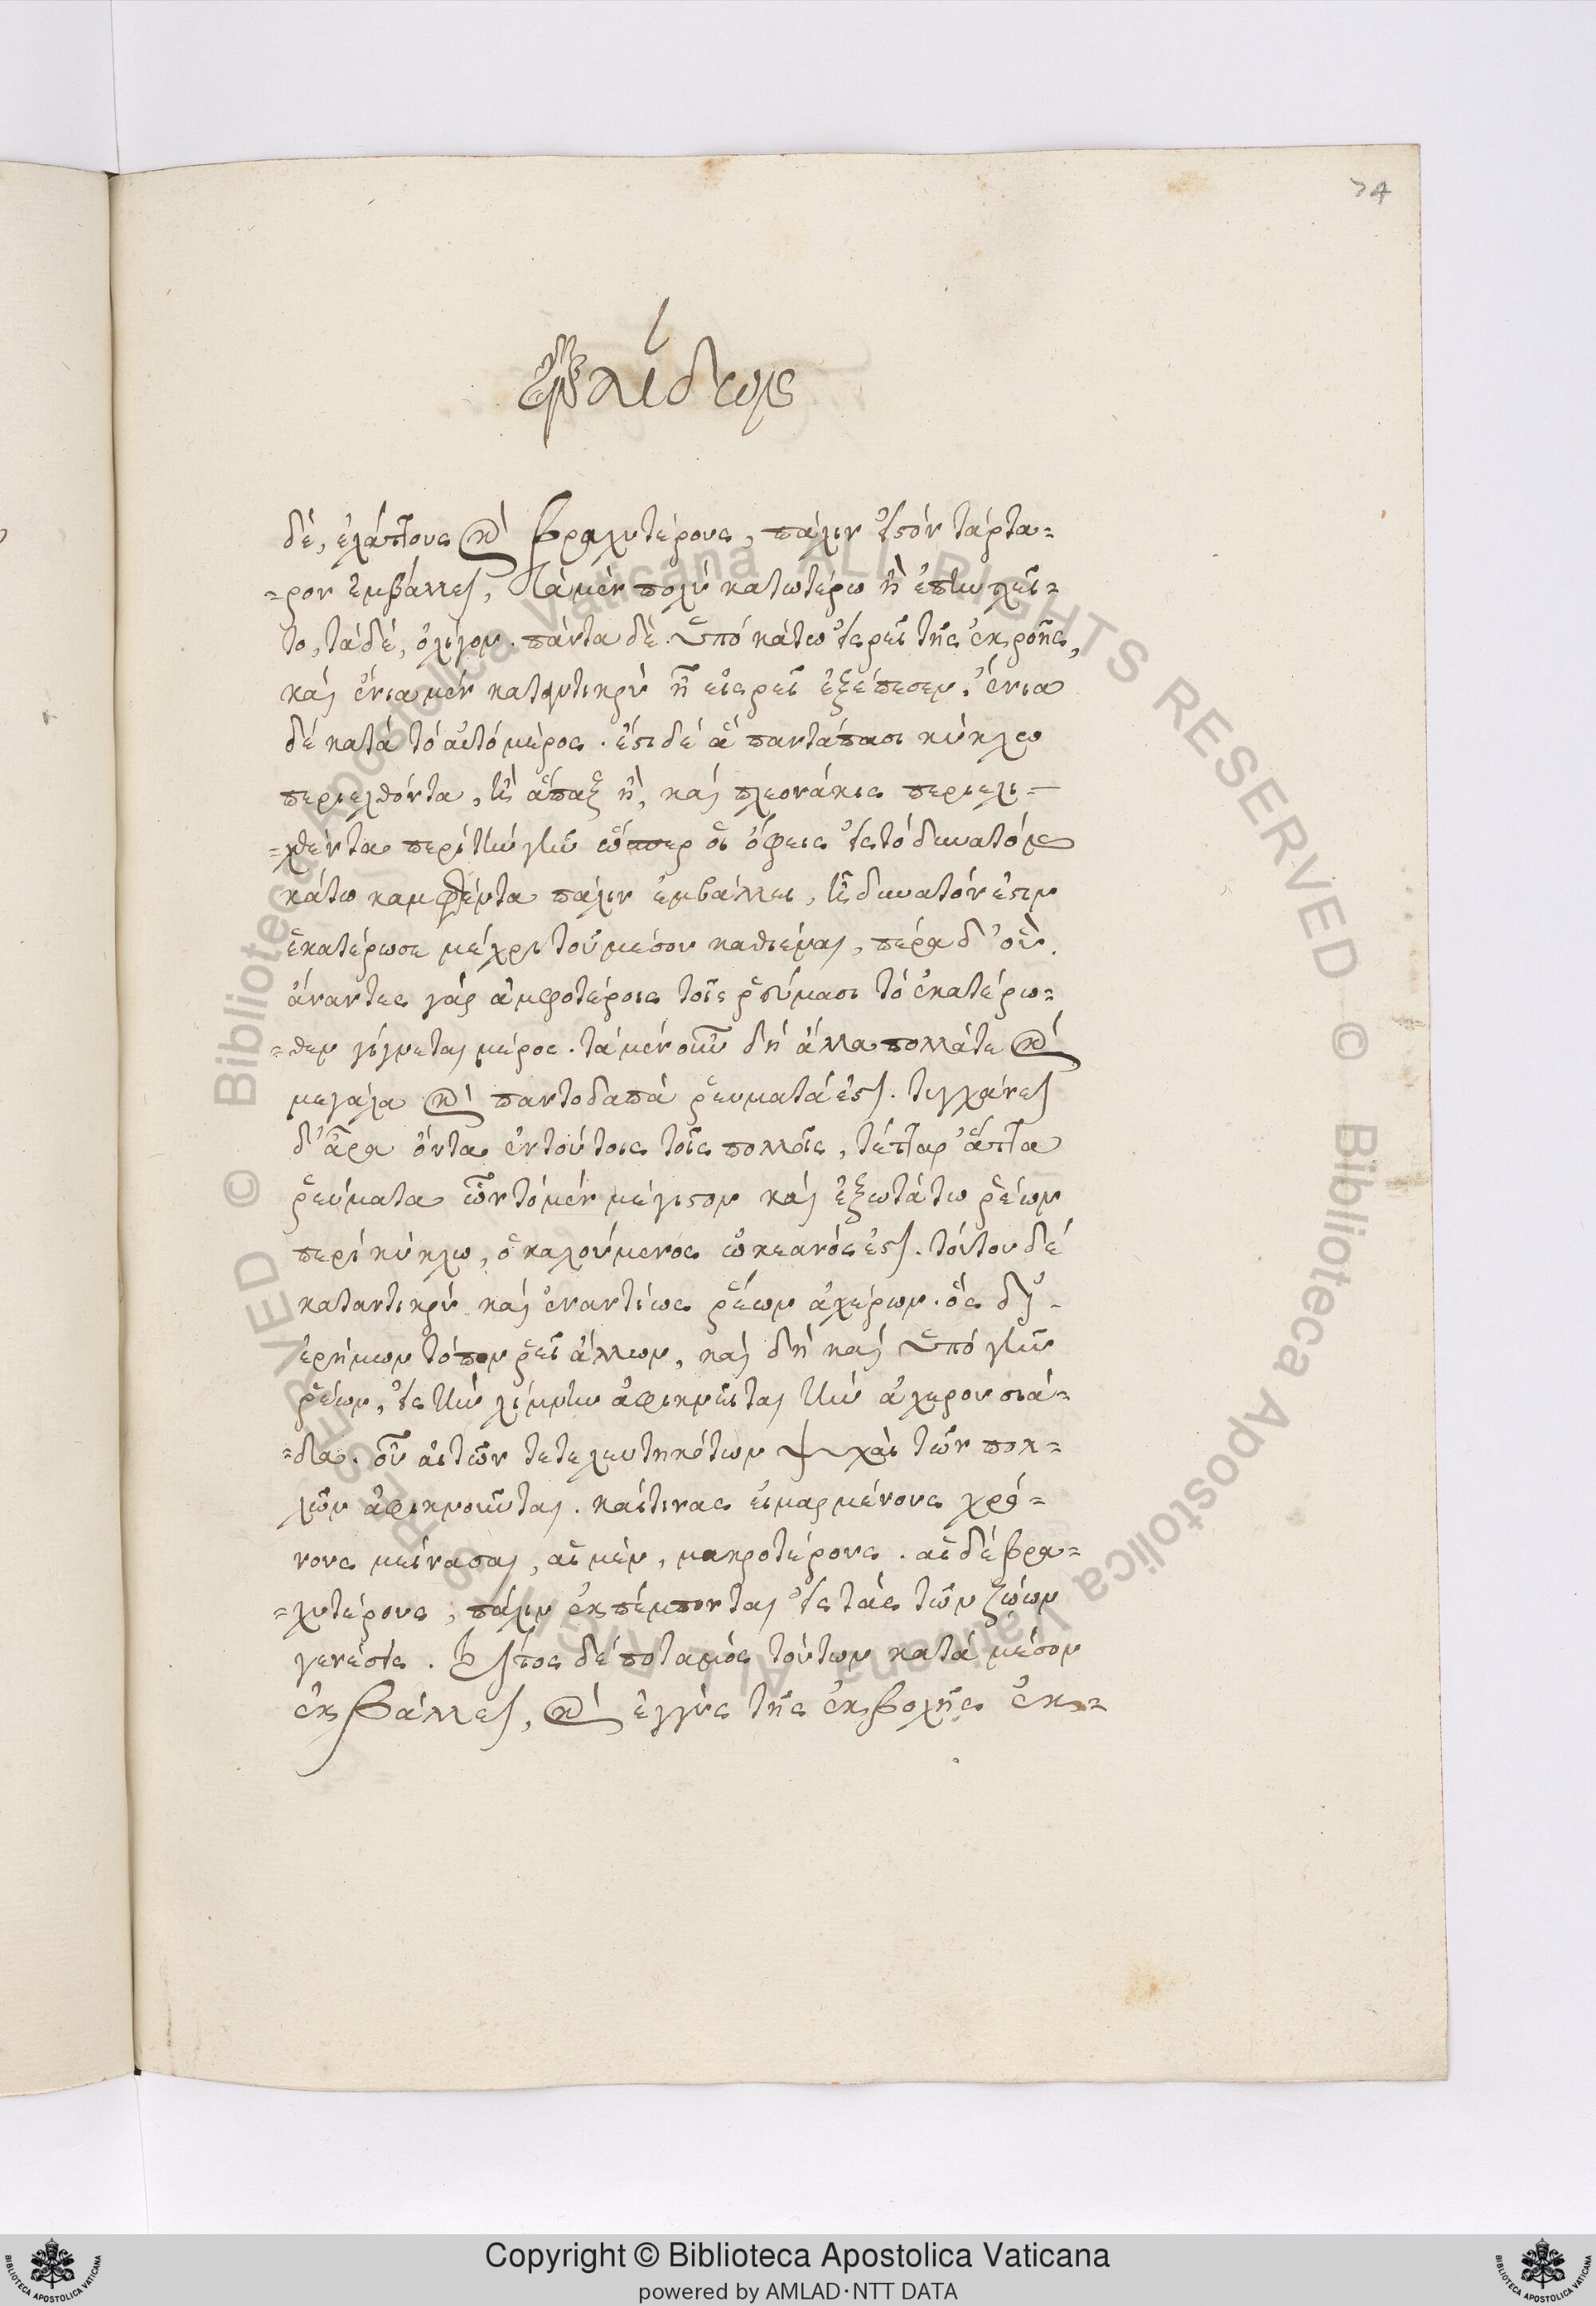 74
ἐκ φαίδωνος
δέ, ἐλάττους καὶ βραχυτέρους, πάλιν εἰς τὸν τάρτα=
=ρον ἐμβάλλει, τὰ μὲν πολὺ κατωτέρω ἢ ἐπηντλεῖ=
το, τὰ δέ, ὀλίγον. πάντα δὲ ὑπὸ κάτω εἰςρεῖ τῆς ἐκροῆς,
καὶ ἔνια μὲν καταντικρὺ ἢ εἰςρεῖ ἐξέπεσεν. ἔνια
δὲ κατὰ τὸ αὐτὸ μέρος. ἔστι δὲ ἃ παντάπασι κύκλω
περιελθόντα, ἢ ἅπαξ ἢ, καὶ πλεονάκις περιελι=
=χθέντα περὶ τὴν γῆν ὥσπερ οἱ ὄφεις εἰς τὸ δυνατὸν
κάτω καμφθέντα πάλιν ἐμβάλλει, ἢ δυνατόν ἐστιν
ἑκατέρωσε μέχρι τοῦ μέσου καθιέναι, πέρα δ' οὔ.
ἄναντες γὰρ ἀμφοτέροις τοῖς ῥεύμασι τὸ ἑκατέρω=
=θεν γίγνεται μέρος. τὰ μὲν οὖν δὴ ἄλλα πολλά τε καὶ
μεγάλα καὶ παντοδαπὰ ῥευματά ἐστι. τυγχάνει
δ' ἄρα ὄντα ἐν τούτοις τοῖς πολλοῖς, τέτταρ' ἄττα
ῥεύματα ὧν τὸ μὲν μέγιστον καὶ ἐξωτάτω ῥέων
περὶ κύκλω, ὁ καλούμενος ὠκεανός ἐστι. τούτου δὲ
καταντικρὺ καὶ ἐναντίως ῥέων ἀχέρων. ὃς δι'
ἐρήμων τόπων ῥεῖ ἄλλων, καὶ δὴ καὶ ὑπὸ γῆν
ῥέων, εἰς τὴν λίμνην ἀφικνεῖται τὴν ἀχερουσιά=
=δα. οὗ αἱ τῶν τετελευτηκότων ψυχαὶ τῶν πολ=
λῶν ἀφικνοῦνται. καί τινας εἱμαρμένους χρό=
νους μείνασαι, αἱ μὲν, μακροτέρους. αἱ δὲ βρα=
=χυτέρους, πάλιν ἐκπέμπονται εἰς τὰς τῶν ζώων
γενέσεις. τρίτος δὲ ποταμὸς τούτων κατὰ μέσον
ἐκβάλλει, καὶ ἐγγὺς τῆς ἐκβολῆς ἐκ=
Copyright © Biblioteca Apostolica Vaticana
powered by AMLAD·NTT DATA
© Biblioteca Apostolica Vaticana ALL RIGHTS RESERVED © Biblioteca Apostolica Vaticana ALL RIGHTS RESERVED
BIBLIOTECA APOSTOLICA VATICANA
BIBLIOTECA APOSTOLICA VATICANA